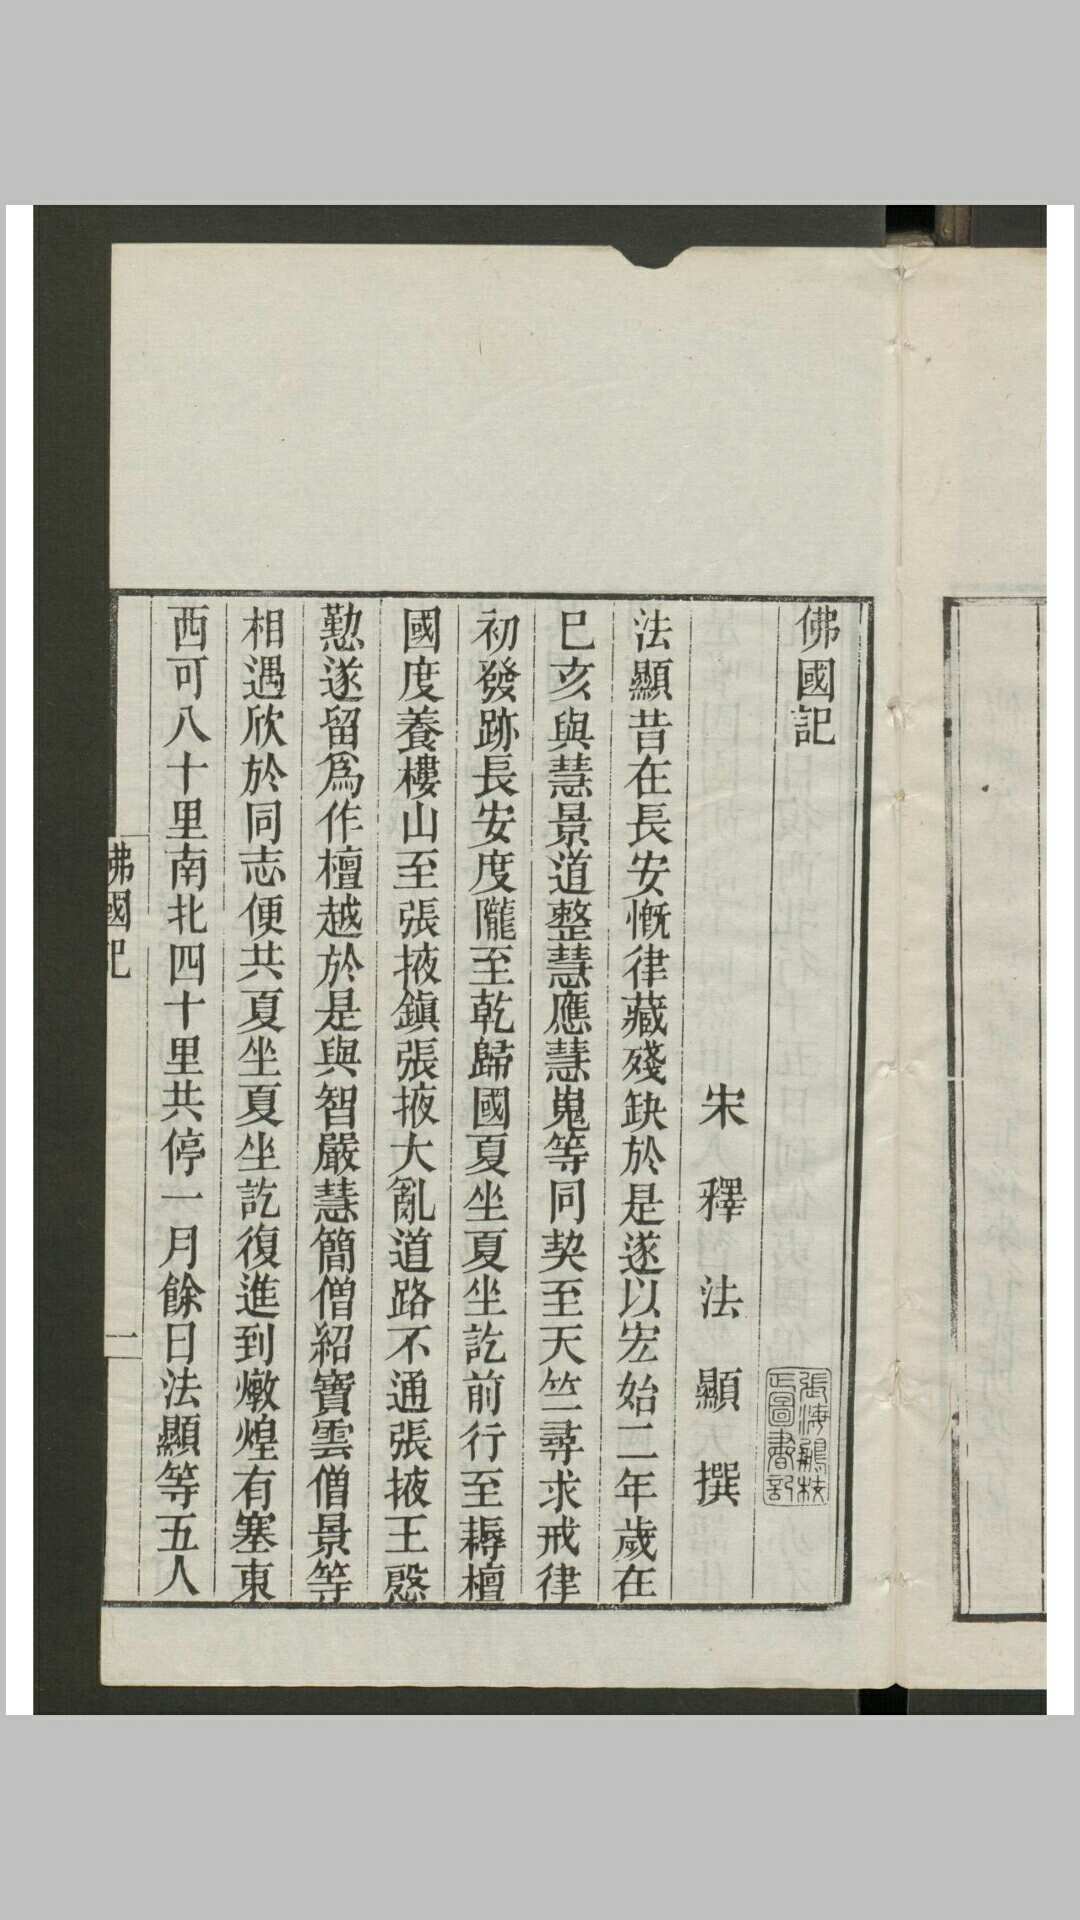 佛國記
張海鵬校
正圖書記
宋釋法顯撰
法顯昔在長安慨律藏殘缺於是遂以宏始二年歲在
巳亥與慧景道整慧應慧嵬等同契至天竺尋求戒律
初發跡長安度隴至乾歸國夏坐夏坐訖前行至耨檀
國度養樓山至張掖鎮張掖大亂道路不通張掖王慇
懃遂留爲作檀越於是與智嚴慧簡僧紹寶雲僧景等
相遇欣於同志便共夏坐夏坐訖復進到燉煌有塞東
西可八十里南北四十里共停一月餘日法顯等五人
佛國記
一